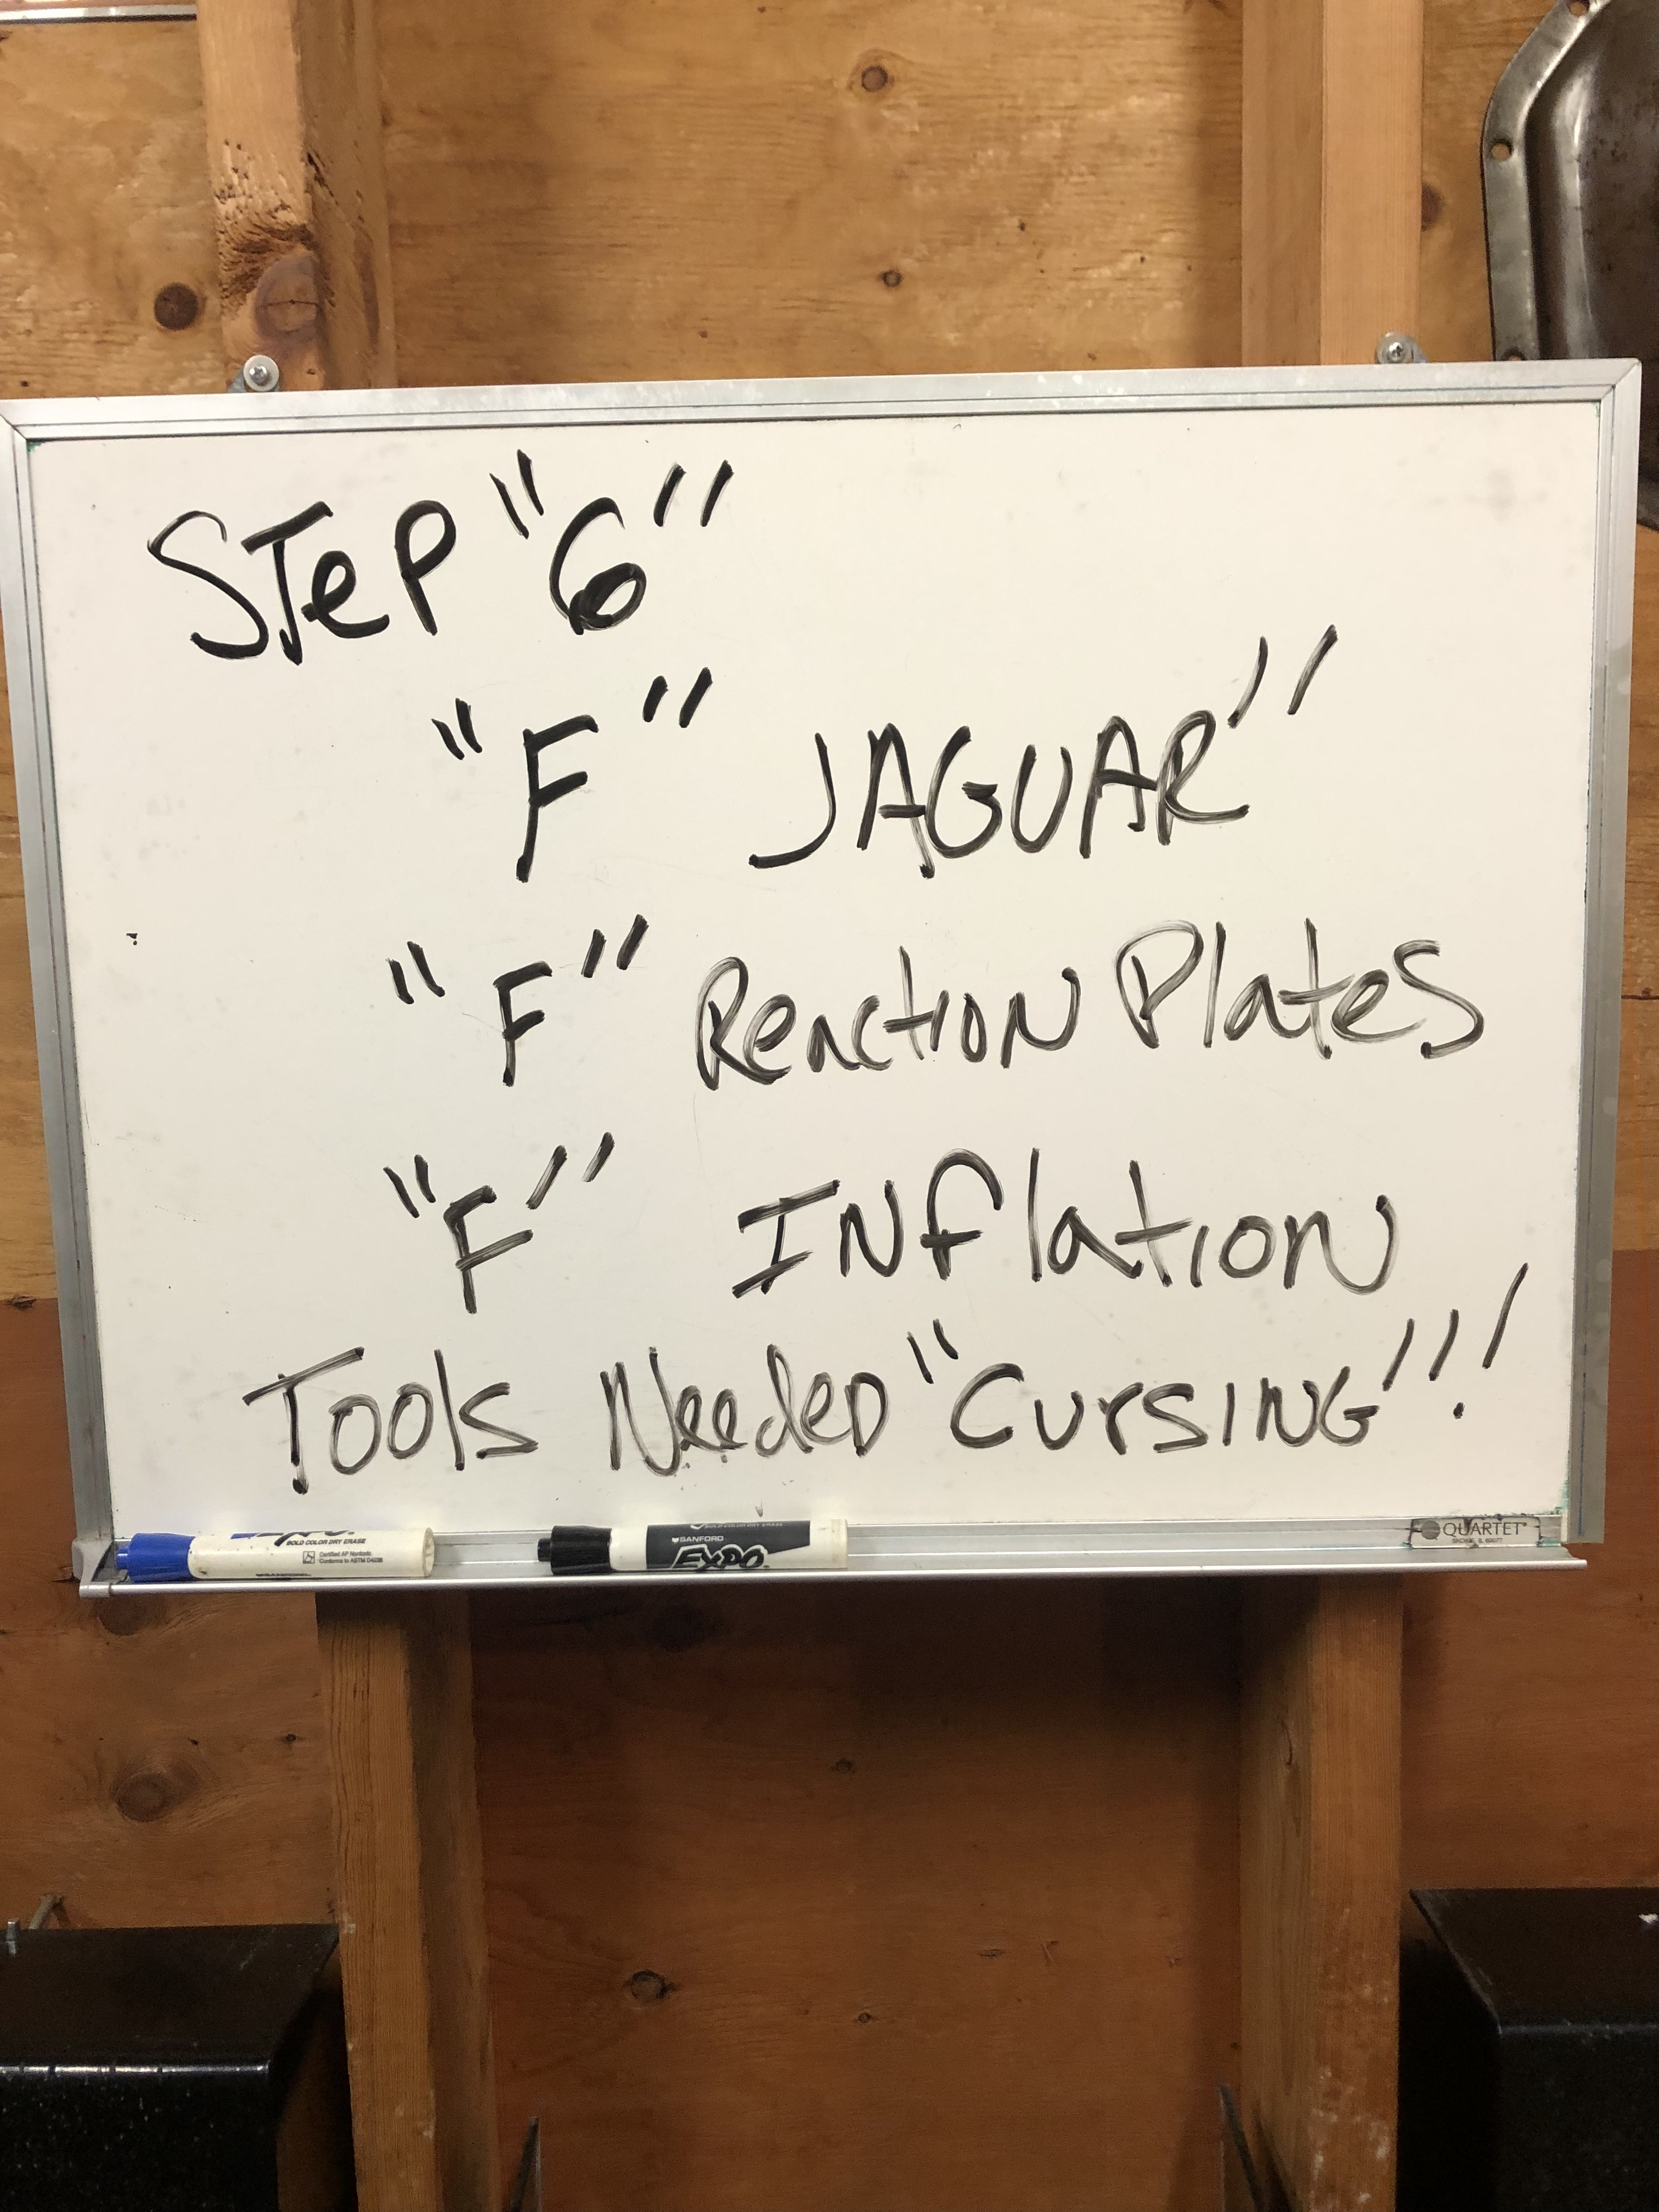 STeP "6"
"F" JAGUAR"
"F" Reaction Plates
"F" INflation
Tools Needed "CursING"!!
EXPO
BOLD COLOR DRY ERASE
Certified AP Nontoxic
Conforms to ASTM D4236
SANFORD
EXPO
QUARTET